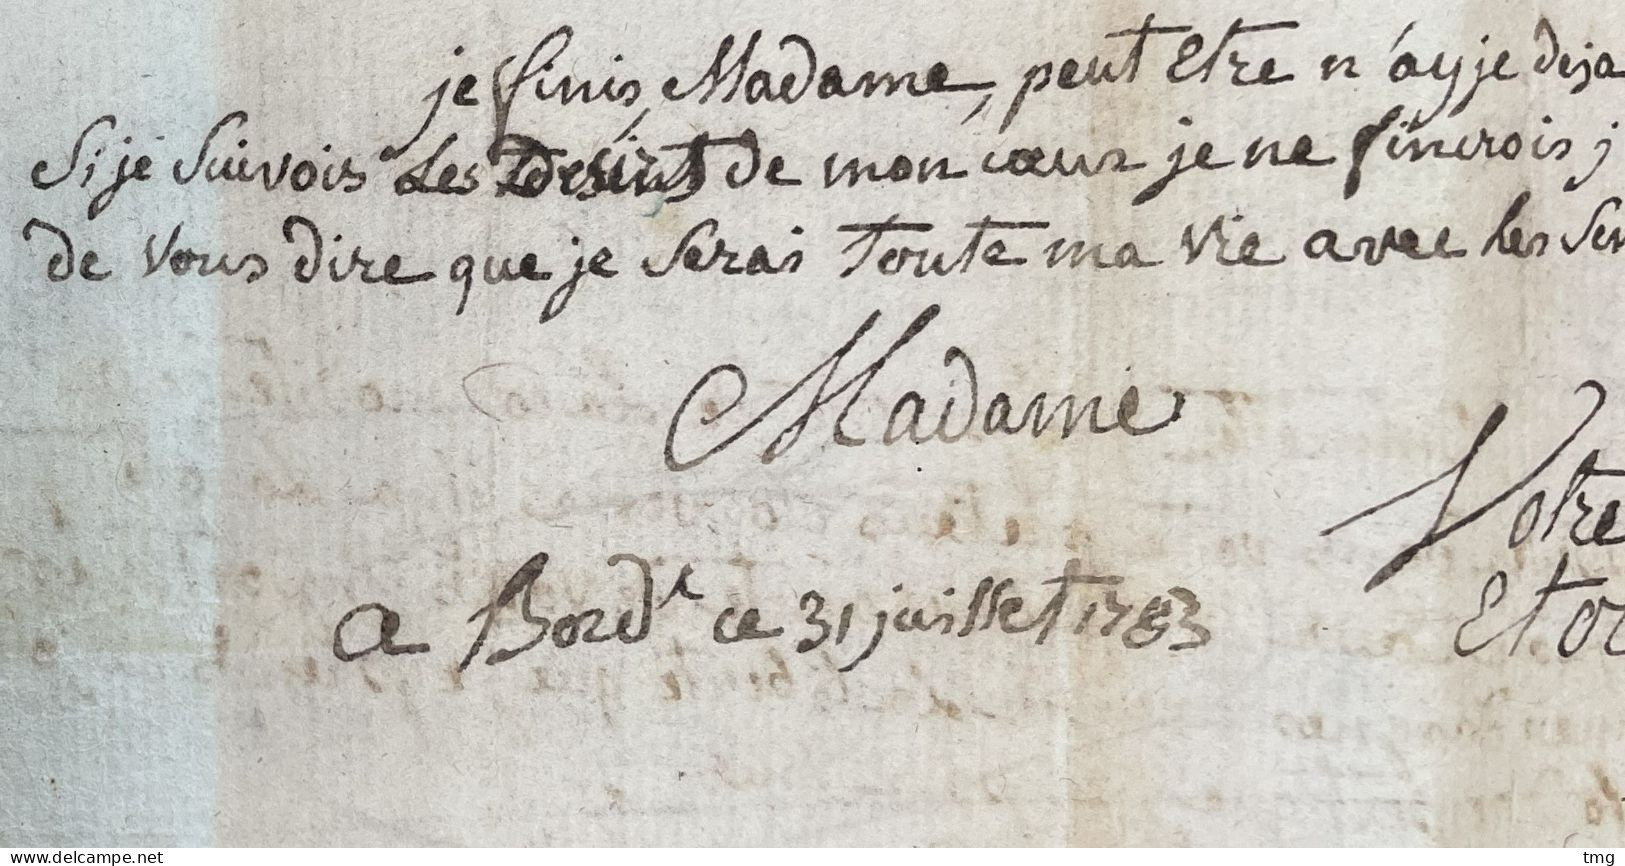 je finis, Madame, peut Etre n'ay je deja
Si je Suivois Les Desirs de mon cœur je ne finirois j
de Vous dire que je Serai toute ma vie avec les Sen
Madame
Votre
a Bord.x ce 31 juillet 1783
Et o
www.delcampe.net
tmg